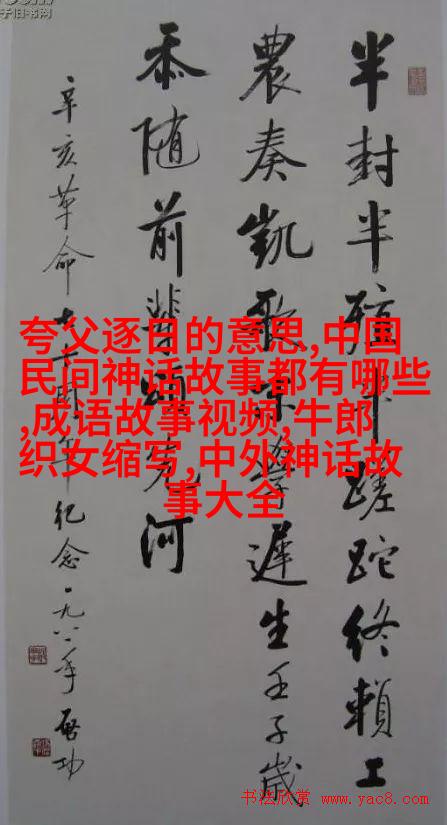 子旧书网
半封半殖蹉跎终賴工
農奏凱歌遲生壬子歲
忝随前輩河
辛亥革命七十周年纪念一九八一年启功
夸父逐日的意思,中国
民间神话故事都有哪些
,成语故事视频,牛郎
织女缩写,中外神话故
事大全
书法欣赏 www.yac8.com